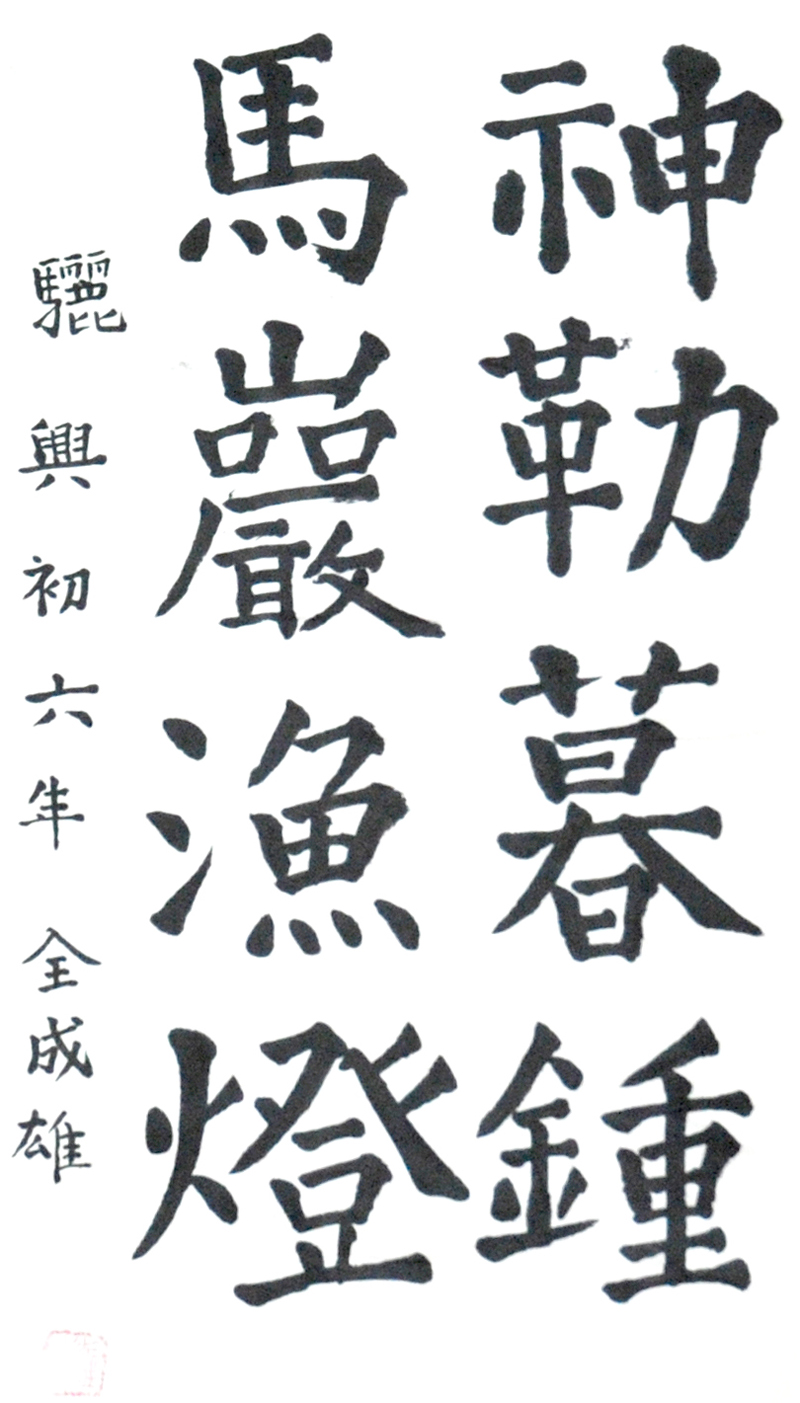 神勒暮鍾
馬巖漁燈
驪興初六年 全成雄